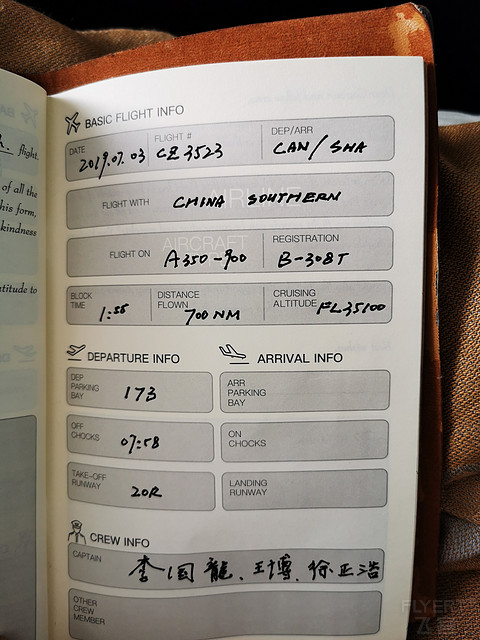 h. flight.
of all the
his form,
kindness
titude to
BASIC FLIGHT INFO
DATE 2019.07.03 FLIGHT # CZ 3523 DEP/ARR CAN/SHA
AIRLINE
FLIGHT WITH CHINA SOUTHERN
AIRCRAFT
FLIGHT ON A350-900 REGISTRATION B-308T
BLOCK TIME 1:55 DISTANCE FLOWN 700 NM CRUISING ALTITUDE FL35100
DEPARTURE INFO
DEP PARKING BAY 173
OFF CHOCKS 07:58
TAKE-OFF RUNWAY 20R
ARRIVAL INFO
ARR PARKING BAY
ON CHOCKS
LANDING RUNWAY
CREW INFO
CAPTAIN 李国龍、王博、徐正浩
OTHER CREW MEMBER
FLYERT